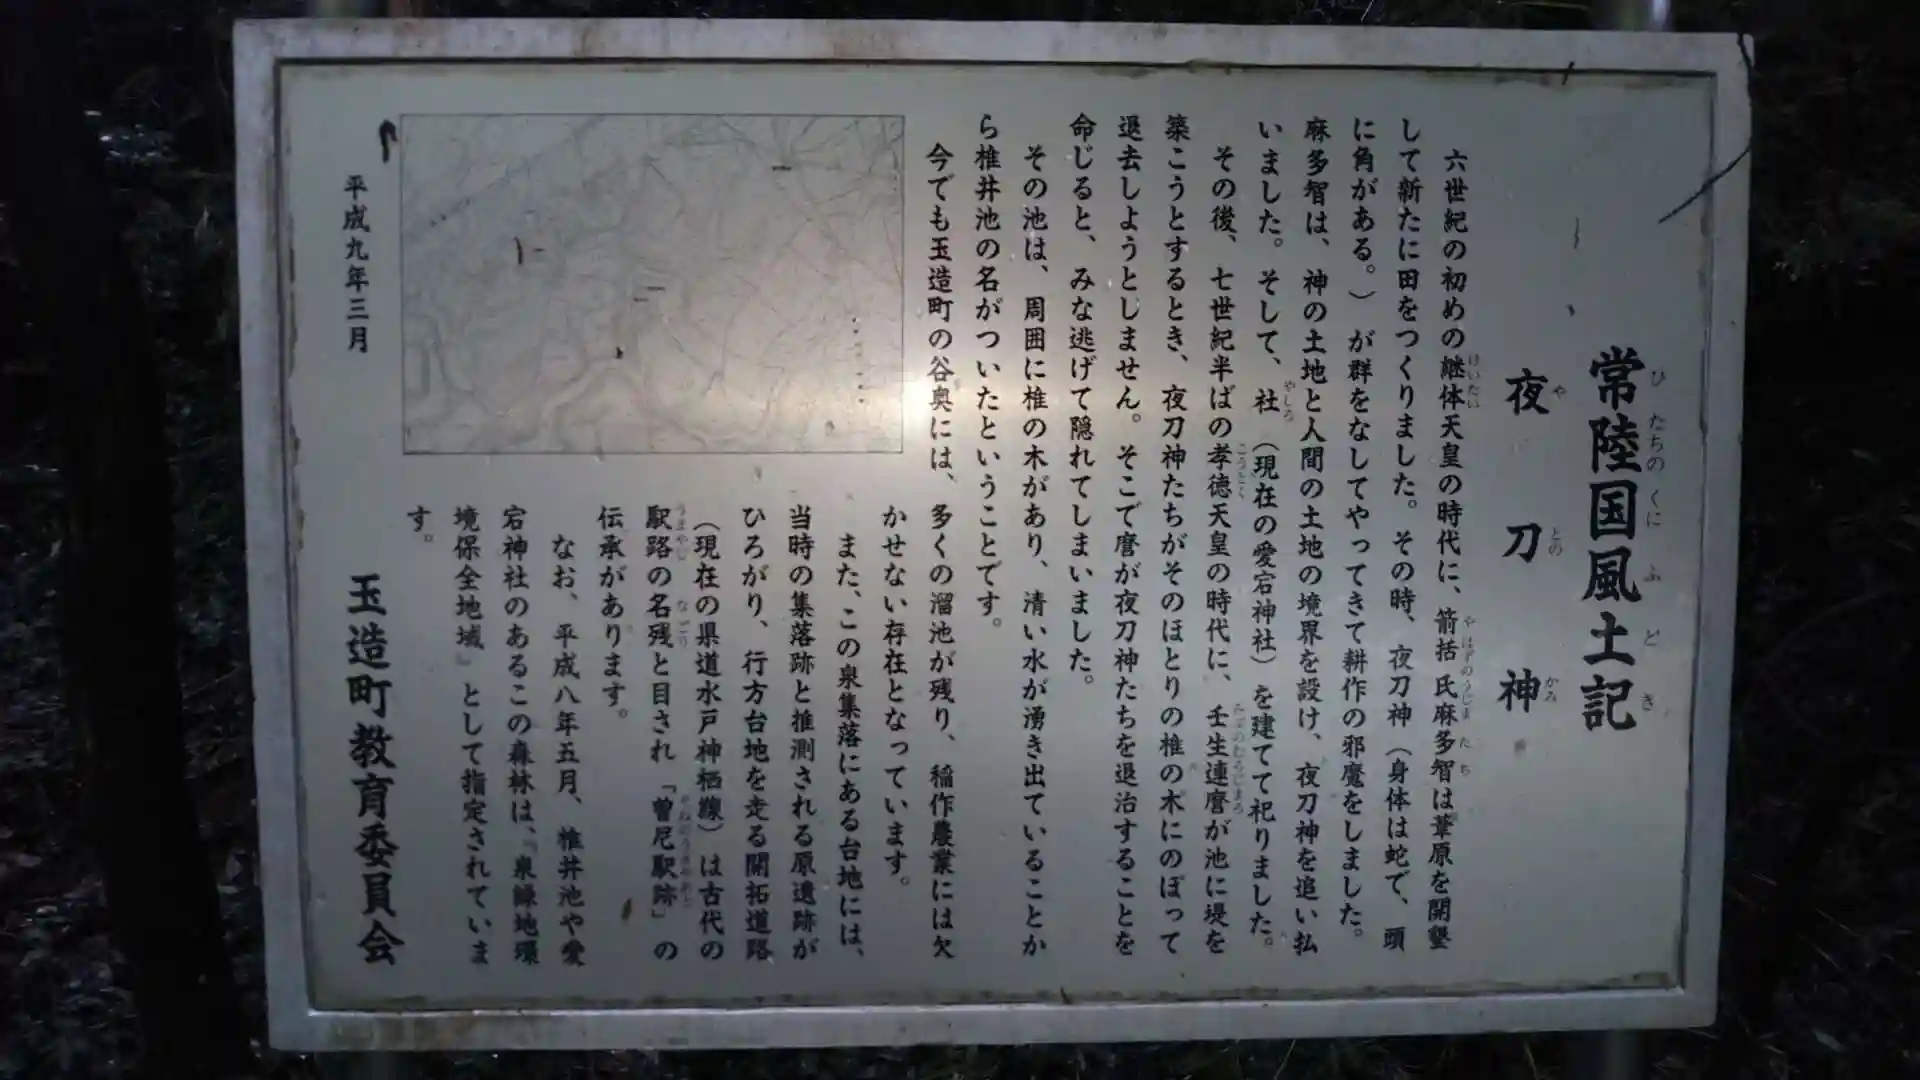 常陸国風土記
ひたちのくにふどき
夜刀神
やとのかみ
六世紀の初めの継体天皇の時代に、箭括氏麻多智は葦原を開墾
けいたい
やはずのうじまたち
して新たに田をつくりました。その時、夜刀神（身体は蛇で、頭
に角がある。）が群をなしてやってきて耕作の邪魔をしました。
麻多智は、神の土地と人間の土地の境界を設け、夜刀神を追い払
いました。そして、社（現在の愛宕神社）を建てて祀りました。
やしろ
その後、七世紀半ばの孝徳天皇の時代に、壬生連麿が池に堤を
こうとく
みぶのむらじまろ
築こうとするとき、夜刀神たちがそのほとりの椎の木にのぼって
退去しようとしません。そこで麿が夜刀神たちを退治することを
命じると、みな逃げて隠れてしまいました。
その池は、周囲に椎の木があり、清い水が湧き出ていることか
ら椎井池の名がついたということです。
今でも玉造町の谷奥には、多くの溜池が残り、稲作農業には欠
かせない存在となっています。
また、この泉集落にある台地には、
当時の集落跡と推測される原遺跡が
ひろがり、行方台地を走る開拓道路
（現在の県道水戸神栖線）は古代の
駅路の名残と目され「曽尼駅跡」の
うまやじ
なごり
伝承があります。
なお、平成八年五月、椎井池や愛
宕神社のあるこの森林は、『泉緑地環
境保全地域』として指定されていま
す。
平成九年三月
玉造町教育委員会